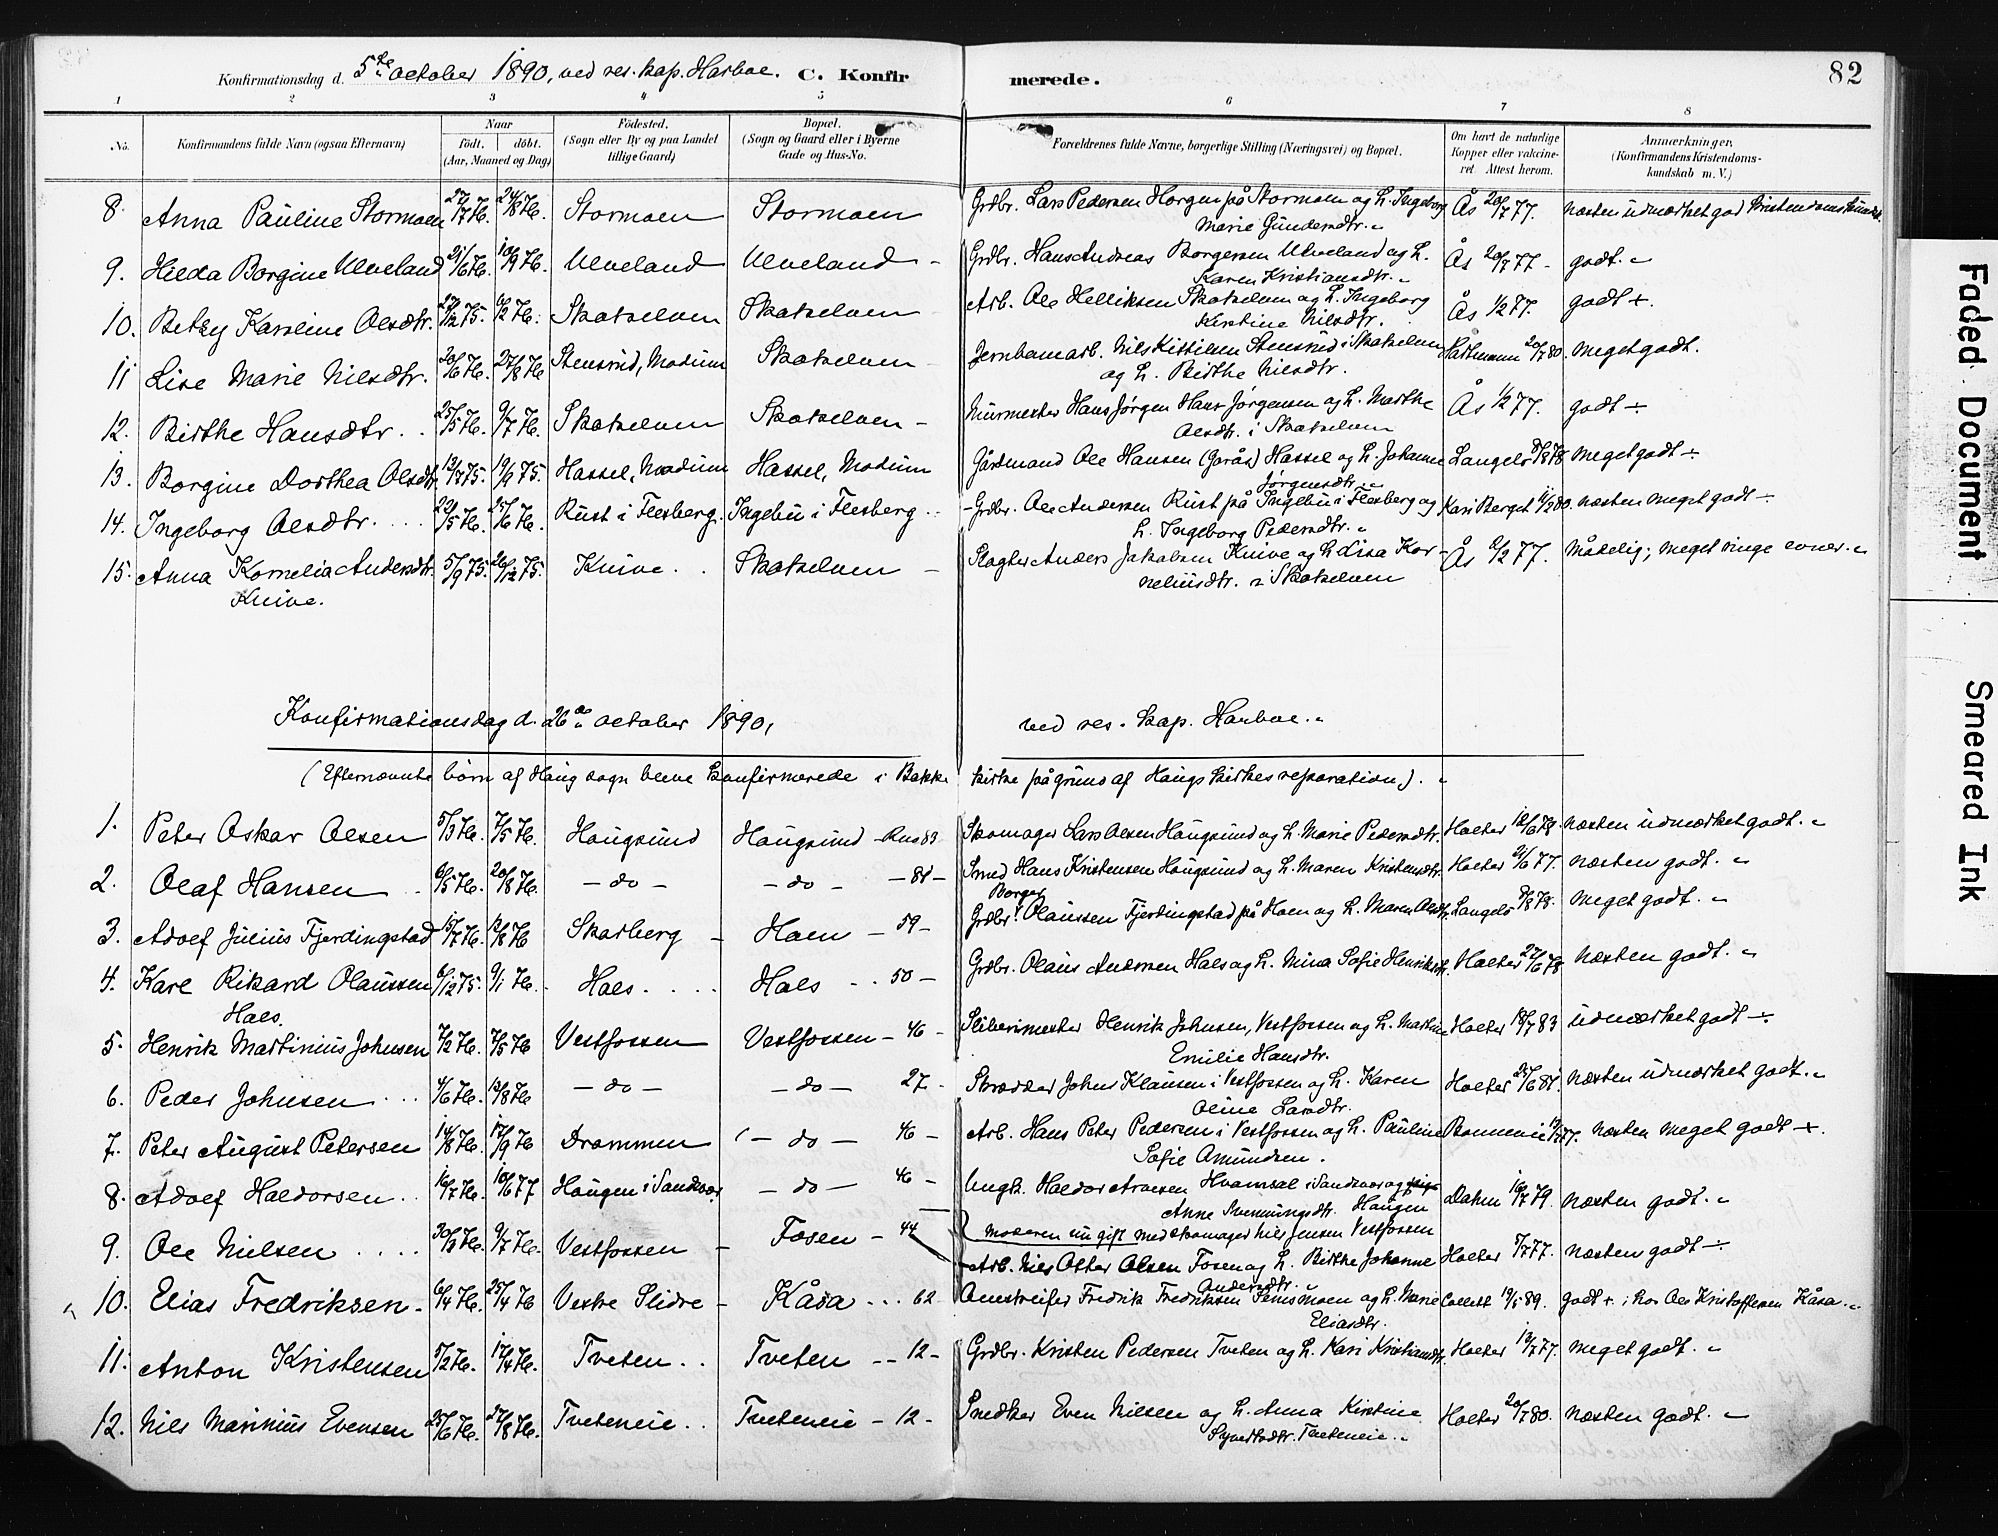 Konfirmationsdag d. 5te october 1890, ved res. kap. Harboe. C. Konfirmerede. 82
1 2 3 4 5 6 7 8
No. Konfirmandens fulde Navn (ogsaa Efternavn) Naar født. døbt. (Aar, Maaned og Dag) Fødested. (Sogn eller By og paa Landet tillige Gaard) Bopæl. (Sogn og Gaard eller i Byerne Gade og Hus-No. Forældrenes fulde Navne, borgerlige Stilling (Næringsvei) og Bopæl. Om havt de naturlige Kopper eller vakcineret Attest herom. Anmerkninger. (Konfirmandens Kristendomskundskab m. V.)
8. Anna Pauline Stormoen 27/7 76. 24/8 76. Stormoen Stormoen Grdbr. Lars Pedersen Horgen på Stormoen og h. Ingeborg Marie Gundersdtr. Ås 20/7 77. næsten udmærket god kristendomskundsk.
9. Hilda Borgine Ulveland 21/6 76. 10/9 76. Ulveland Ulveland Grdbr. Hans Andreas Borgersen Ulveland og h. Karen Kristiansdtr. Ås 20/7 77. godt.
10. Betzy Karoline Olsdtr. 27/12 75. 6/2 76. Skotselven Skotselven Arb. Ole Helliksen Skotselven og h. Ingeborg Kirstine Nilsdtr. Ås 1/2 77. godt +.
11 Lise Marie Nilsdtr. 20/6 76. 27/8 76 Stensrud, Modum Skotselven Jernbanearb. Nils Kittilsen Stensrud i Skotselven og h. Birthe Nilsdtr. Hartmann 20/7 80. meget godt.
12. Birthe Hansdtr. 25/5 76. 9/7 76. Skotselven Skotselven Murmester Hans Jørgen Hans Jørgensen og h. Marthe Olsdtr. i Skotselven Ås 1/2 77. godt ÷
13. Borgine Dorthea Olsdtr. 13/7 75. 19/9 75. Hassel, Modum Hassel, Modum Gårdmand Ole Hansen (Garås) Hassel og h. Johanne Jørgensdtr. Langelö 78 meget godt ÷
14. Ingeborg Olsdtr. 22/5 76. 25/6 76. Rust i Flesberg. Ingebu i Flesberg Grdbr. Ole Andersen Rust på Ingebu i Flesberg og h. Ingeborg Pedersdtr. Kari Berget 11/2 80. næsten meget godt ÷
15. Anna Kornelia Andersdtr. Knive. 5/9 75. 26/12 75. Knive. Skotselven Slagter Anders Jakobsen Knive og h. Lisa Korneliusdtr. i Skotselven Ås 2/2 77. Mådelig; meget ringe evner.
Konfirmationsdag d. 26de october 1890, ved res. kap. Harboe.
(Efternævnte børn af Haug sogn bleve konfirmerede i Bakke kirke på grund af Haugs kirkes reparation).
1. Peter Oskar Olsen 5/3 76. 7/5 76. Hougsund Hougsund - Hus 83 Skomager Lars Olsen Hougsund og h. Marie Pedersdtr. Holter 12/6 78. næsten udmærket godt.
2. Olaf Hansen 6/5 76. 20/8 76. - do - - do - - 81 - Smed Hans Kristensen Hougsund og h. Maren Kristensdtr. Holter 21/6 77. næsten godt.
3. Adolf Julius Fjerdingstad 15/7 76. 13/8 76 Skarberg Hoen - 59 - Grdbr. Borger Olaussen Fjerdingstad på Hoen og h. Maren Olsdtr. Langelö 78. meget godt.
4. Karl Rikard Olaussen Hals. 6/12 75. 9/1 76. Hals Hals 50 - Grdbr. Olaus Andersen Hals og h. Mina Sofie Henriksdtr. Holter 27/6 78 næsten godt.
5. Henrik Martinius Johnsen 7/2 76. 7/5 76 Vestfossen Vestfossen - 46 - Sliberimester Henrik Johnsen, Vestfossen og h. Martine Emilie Hansdtr. Holter 18/7 83 udmærket godt ÷.
6. Peder Johnsen 4/6 76. 13/8 76 - do - - do - 27 - Skrædder Johns Klausen i Vestfossen og h. Karen Oline Larsdtr. Holter 25/6 81. næsten udmærket godt.
7. Peter August Petersen 14/8 76. 17/9 76 Drammen - do - 46 - Arb. Hans Peter Pedersen i Vestfossen og h. Pauline Sofie Amundsen. 77. næsten meget godt +.
8. Adolf Haldorsen 16/7 76. 10/6 77 Hougen i Sandsvær - do - 46 - Ungk. Haldor Arvesen Hvamsal i Sandsvær og pige Anne Svenningsdtr. Haugen Dahm 16/7 79. næsten godt.
(moderen nu gift med skomager Nils Jensen Vestfossen
9. Ole Nielsen 30/3 76. 9/7 76. Vestfossen Fosen - 44 Arb. Niels Otter Olsen Fosen og h. Birthe Johanne Andersdtr. Holter 5/7 77. næsten godt ÷
10. Elias Fredriksen 6/4 76. 25/4 76 Vestre Slidre Kåsa 62 Omstreifer Fredrik Fredriksen Finismoen og h. Marie Eliasdtr. Collett 19/5 89. godt +; hos Ole Kristoffersen Kåsa.
11. Anton Kristensen 5/2 76. 17/4 76. Tveten Tveten - 12 - Grdbr. Kristen Pedersen Tveten og h. Kari Kristiansdtr. Holter 13/7 77. meget godt.
12. Nils Marinius Evensen 25/6 76. 27/8 76. Tveteneie Tveteneie - 12 - Snedker Even Nilsen og h. Anna Kirstine Syvertsdtr. Tveteneie. Holter 20/7 80. næsten godt.
Faded Document
Smeared Ink